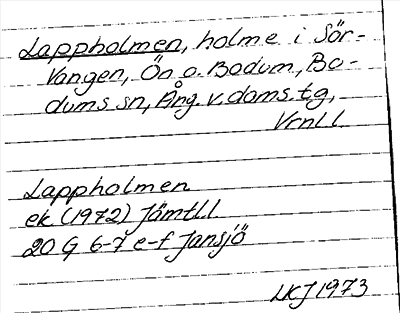 Lappholmen, holme i Sör-
vången, Ön o. Bodum, Bo-
dums sn, Ång. v. doms. tg,
Vrnl l.
Lappholmen
ek (1972) Jämtl. l
20 G 6-7 e-f Jansjö
LKJ 1973